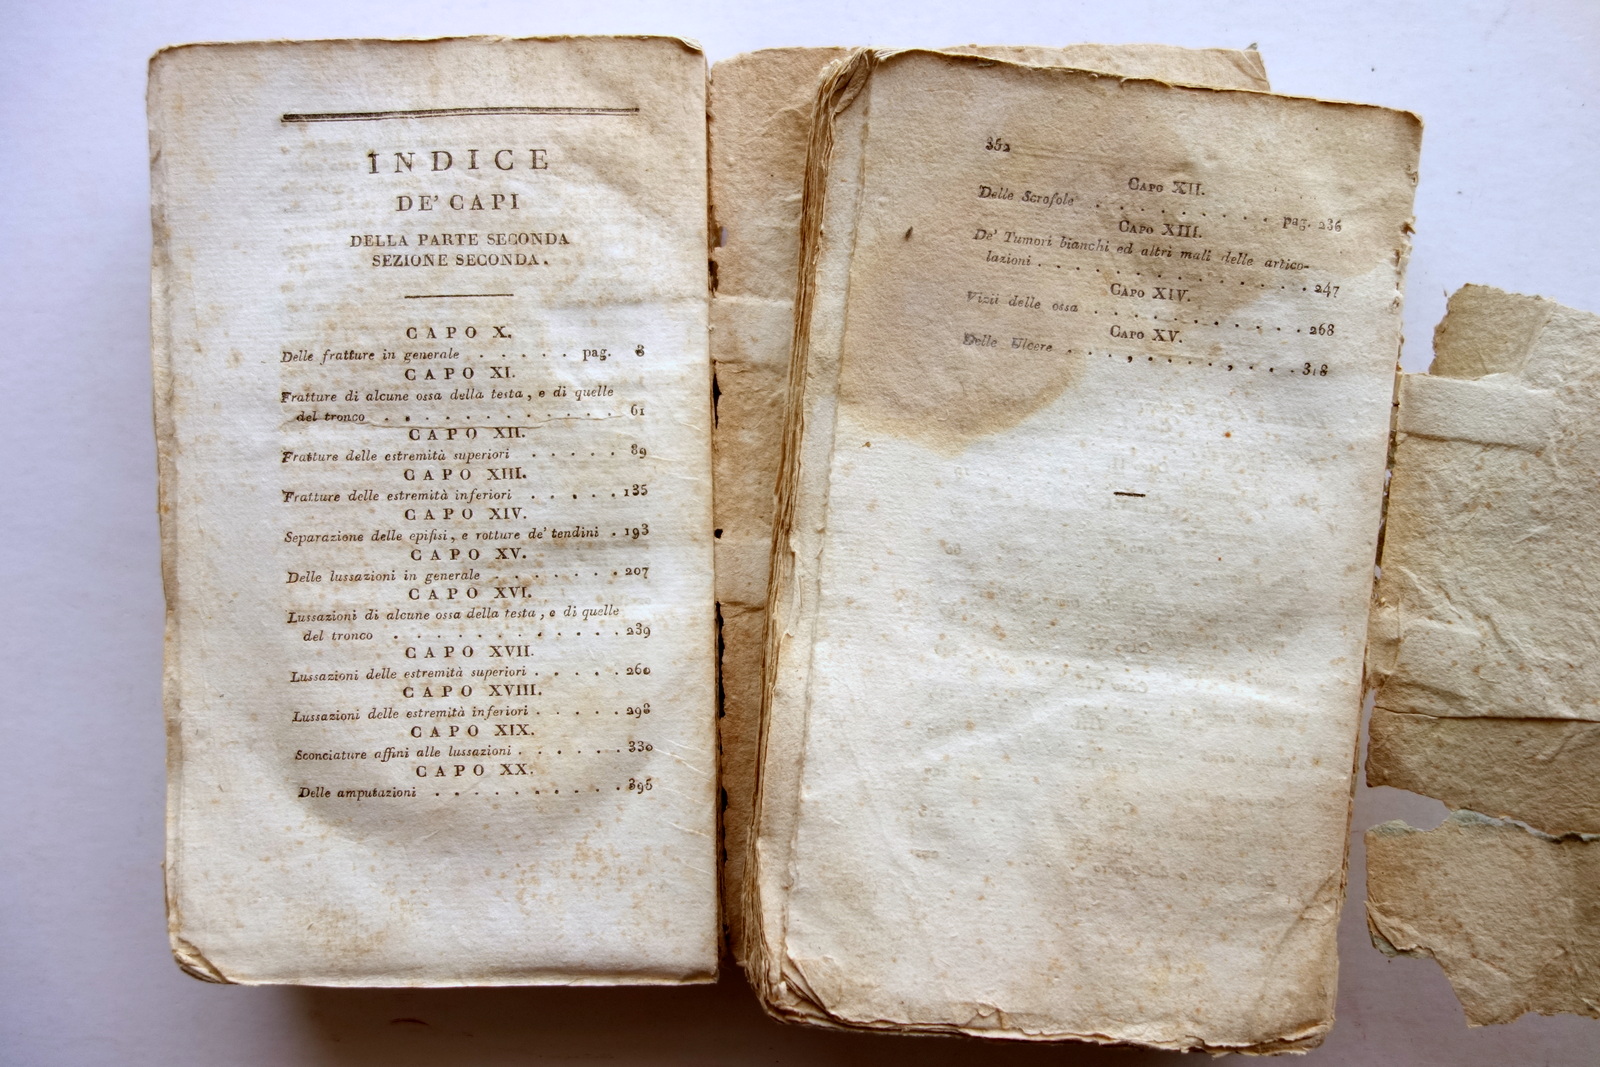 INDICE
DE' CAPI
DELLA PARTE SECONDA
SEZIONE SECONDA.
CAPO X.
Delle fratture in generale . . . . . pag. 3
CAPO XI.
Fratture di alcune ossa della testa, e di quelle
del tronco . . . . . . . . . . . . 61
CAPO XII.
Fratture delle estremità superiori . . . . . 89
CAPO XIII.
Fratture delle estremità inferiori . . . . . 135
CAPO XIV.
Separazione delle epifisi, e rotture de' tendini . 193
CAPO XV.
Delle lussazioni in generale . . . . . . . 207
CAPO XVI.
Lussazioni di alcune ossa della testa, e di quelle
del tronco . . . . . . . . . . . . 239
CAPO XVII.
Lussazioni delle estremità superiori . . . . . 260
CAPO XVIII.
Lussazioni delle estremità inferiori . . . . . 298
CAPO XIX.
Sconciature affini alle lussazioni . . . . . . 330
CAPO XX.
Delle amputazioni . . . . . . . . . . 395
352
CAPO XII.
Delle Scrofole . . . . . . . . . . pag. 236
CAPO XIII.
De' Tumori bianchi ed altri mali delle artico-
lazioni . . . . . . . . . . . . 247
CAPO XIV.
Vizii delle ossa . . . . . . . . . . . 268
CAPO XV.
Delle Ulcere . . . . . . . . . . . 318